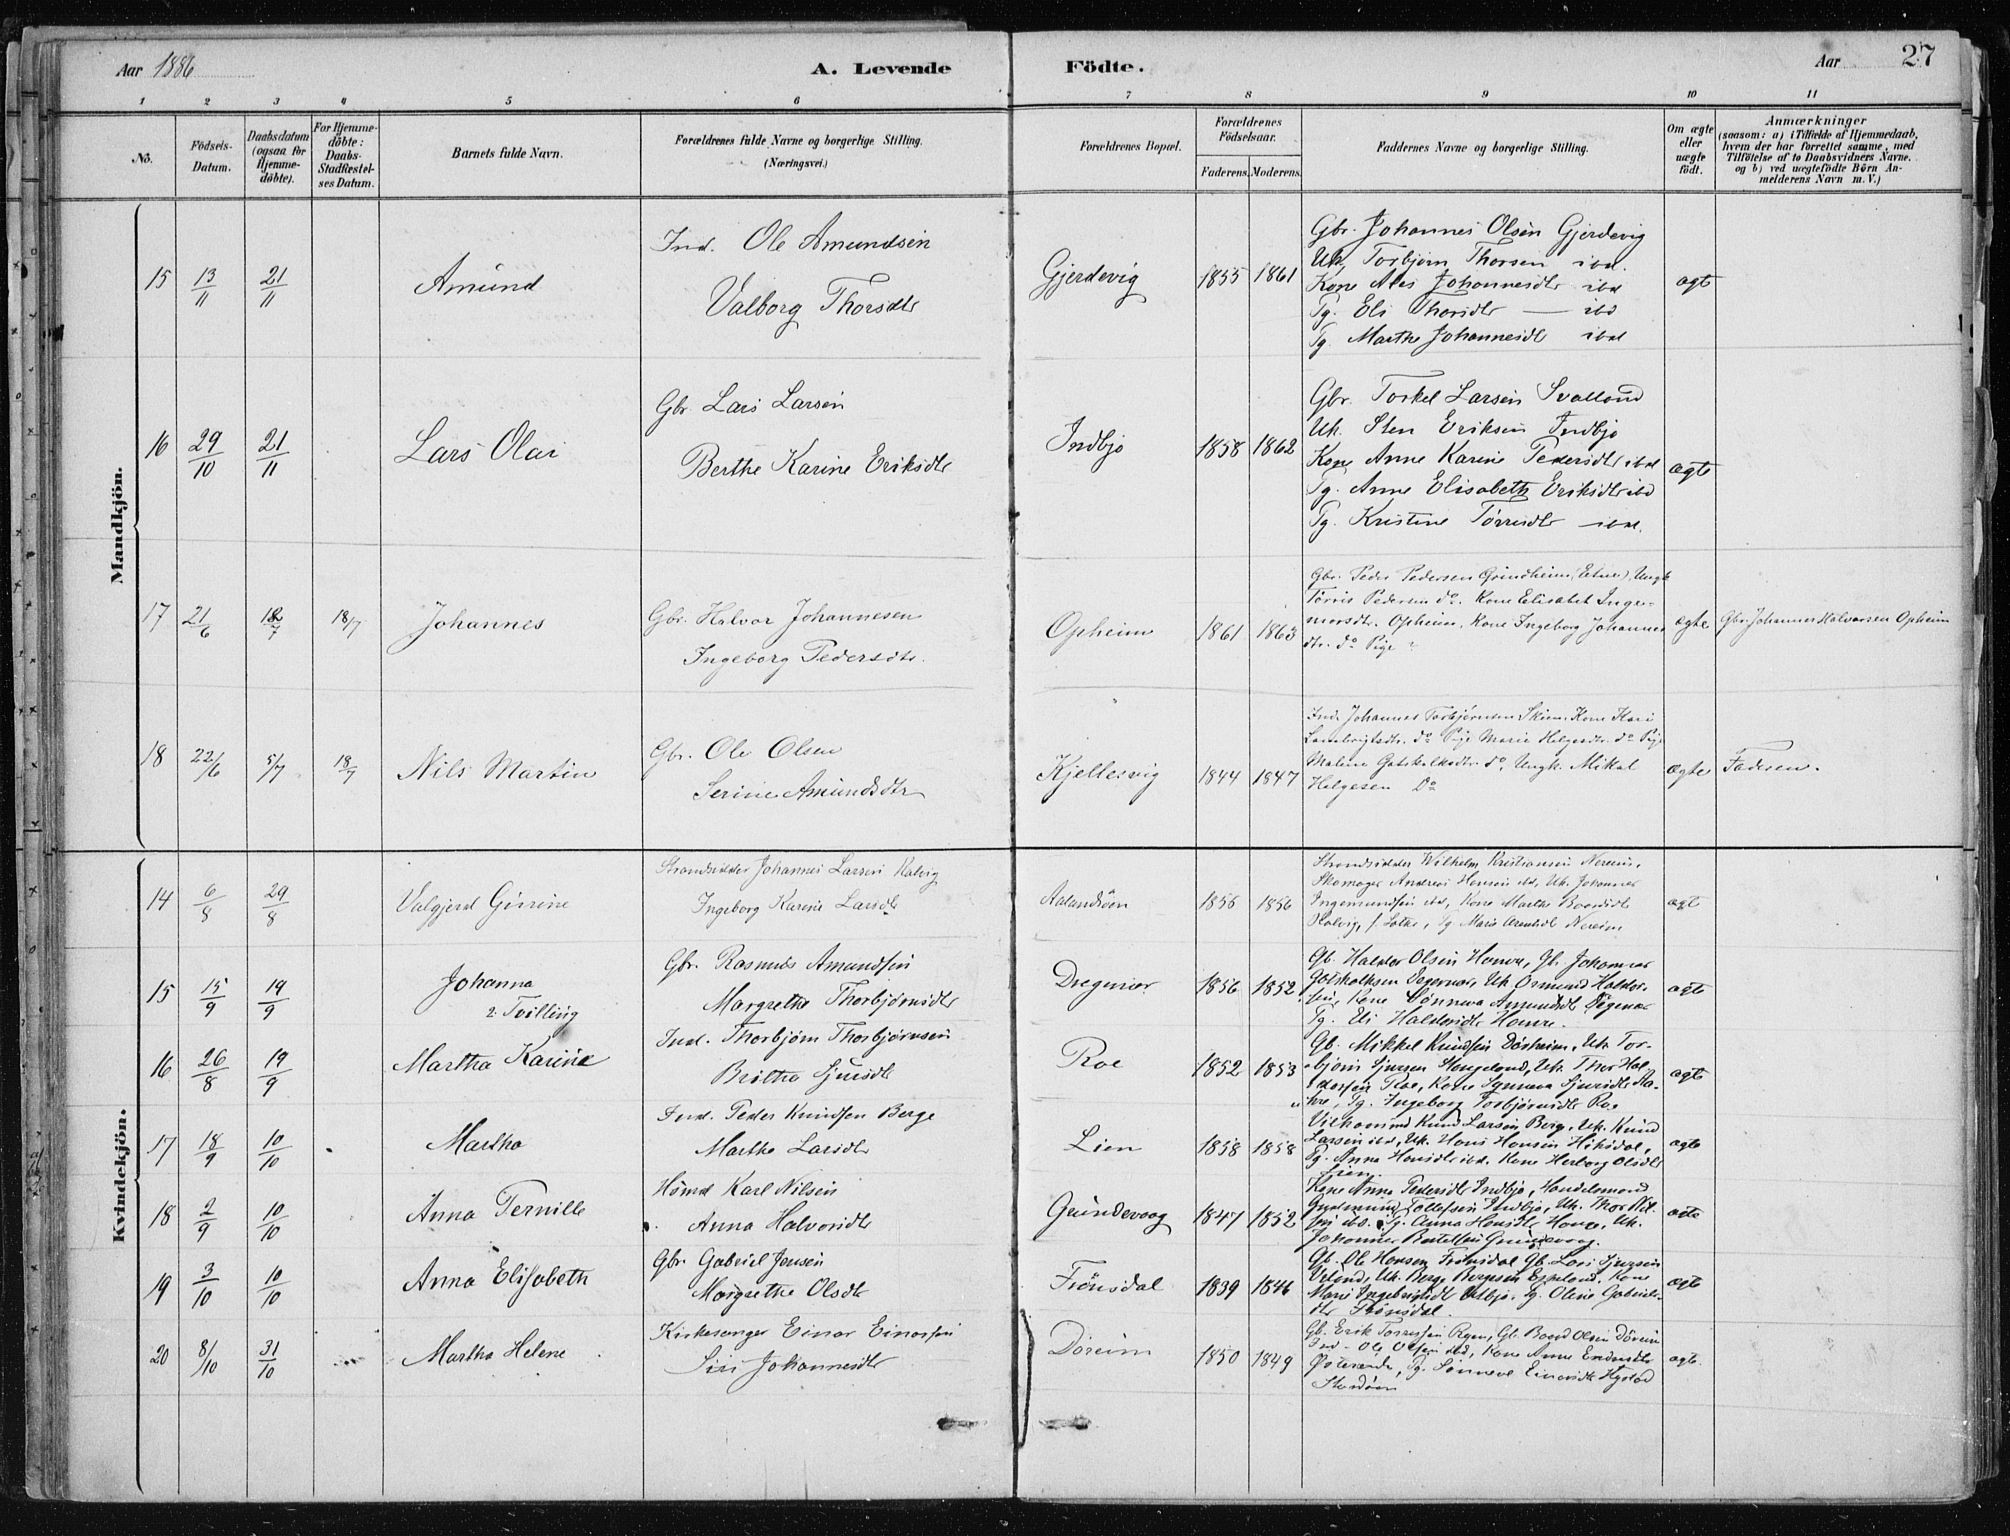 Aar 1886
A. Levende
Födte.
Aar
27
1 2 3 4 5 6 7 8 9 10 11
No.
Födsels-Datum.
Daabsdatum (ogsaa for Hjemme-döbte).
For Hjemme-döbte: Daabs-Stadfæstel-ses Datum.
Barnets fulde Navn.
Forældrenes fulde Navne og borgerlige Stilling. (Næringsvei.)
Forældrenes Bopæl.
Forældrenes Födselsaar.
Faderens. Moderens.
Faddernes Navne og borgerlige Stilling.
Om ægte eller uægte födt.
Anmærkninger
(saasom: a) i Tilfælde af Hjemmedaab,
hvem der har forrettet samme, med
Tilföielse af to Daabsvidners Navne.
og b) ved uægtefödte Börn An-
melderens Navn m. V.)
Mandkjön.
15 13/11 21/11 Amund
Ind. Ole Amundsen
Valborg Thorsdtr
Gjerdevig 1855 1861
Gbr. Johannes Olsen Gjerdevig
Uk. Torbjørn Thorsen ibd.
Kone Ales Johannesdtr ibd
Pg. Eli Thorsdtr — ibd
Pg. Marthe Johannesdtr ibd
ægt
16 29/10 21/11 Lars Olai
Gbr Lars Larsen
Berthe Karine Eriksdtr
Indbjo 1858 1862
Gbr. Torkel Larsen Svalland
Uk. Sten Eriksen Indbjo
Kone Anne Karine Pedersdtr ibd
Pg. Anne Elisabeth Eriksdtr ibd
Pg. Kristine Tørrisdtr — ibd.
ægte
17 21/6 12/7 18/7 Johannes
Gbr. Halvor Johannesen
Ingeborg Pedersdtr.
Opheim 1861 1863
Gbr. Peder Pedersen Grindheim (Etne), Ungk
Tørris Pedersen do. Kone Elisabet Inge-
morsdtr. Opheim, Kone Ingeborg Johannes
dtr. do Pige
ægte
Gbr. Johannes Halvorsen Opheim
18 22/6 5/7 18/7 Nils Martin
Gbr. Ole Olsen
Serine Amundsdtr
Kjellesvig 1844 1847
Ind. Johannes Torbjørnsen Skien, Kone Kari
Lambrigtsdtr. do Pige Marie Helgesdtr do Pige
Malene Gotskalksdtr. do, Ungk. Mikal
Helgesen Do
ægte
Faderen.
Kvindekjön.
14 6/8 29/8 Valgjerd Girine
Strandsidder Johannes Larsen Kalvig
Ingeborg Karine Larsdtr
Aalandsöen 1856 1856
Strandsidder Wilhelm Kristiansen Nereim,
Skomager Andreas Hansen ibd, Uk. Johannes
Ingemundsen ibd, Kone Marthe Baardsdtr
Kalvig, Pg Marie Nereim
ægt
15 15/9 19/9 Johanna
2. Tvilling
Gbr. Rasmus Amundsen
Margrethe Thorbjörnsdtr
Dregnior 1856 1852
Gb. Haldor Olsen Hamre, Gb. Johannes
Gotskalksen Degernæs, Uk Osmund Haldor-
sen, Kone Sönneva Amundsdtr Degernæs
Pg. Eli Haldorsdtr Hamre.
ægte
16 26/8 19/9 Martha Karine
Ind. Thorbjørn Thorbjørnsen
Britha Sjursdtr
Roe 1852 1853
Gb. Mikkel Knudsen Dörheim, Uk. Tor-
bjørn Sjursen Haugeland, Uk. Thor Hal-
dorsen Roe, Kone Synneva Sjursdtr
Pg. Ingeborg Torbjørnsdtr Roe
ægte
17 18/9 10/10 Martha
Ind. Peder Knudsen Berge
Marthe Larsdtr
Lien 1858 1858
Knud Larsen Berg, Uk. Knud
Larsen ibd, Uk. Hans Hansen Hiksdal,
Pg. Anna Hansdtr ibd. Kone Herborg Olsdtr
Lien.
ægte
18 2/9 10/10 Anna Pernille
Hömd Karl Nilsen
Anna Halvorsdtr
Grundevaag 1847 1852
Kone Anna Pedersdtr Indbjo, Handelsmand
Gudmund Tollefsen Indbjo, Uk. Thor Nil-
sen ibd. Pg. Anna Hansdtr Hamre, Uk.
Johannes Bertelsen Grundevaag.
ægte
19 3/10 10/10 Anna Elisabeth
Gbr. Gabriel Jensen
Margrethe Olsdtr
Frönsdal 1839 1846
Gb. Ole Hansen Frönsdal Gb. Lars Sjursen
Veland, Uk. Berge Bergesen Espeland, Kone
Marie Ingebrigtsdtr Utbjo, Pg. Oline Gabriels-
dtr Frönsdal.
ægte
20 8/10 31/10 Martha Helene
Kirkesanger Einar Einarsen
Siri Johannesdtr
Döreim 1850 1849
Gb. Erik Torresen, Gb. Baard Olsen Döreim
Ind. Ole Olsen ibd, Kone Anne Endresdtr
Pg. Sönneve Einarsdtr Hystad
Stordöen
ægte.